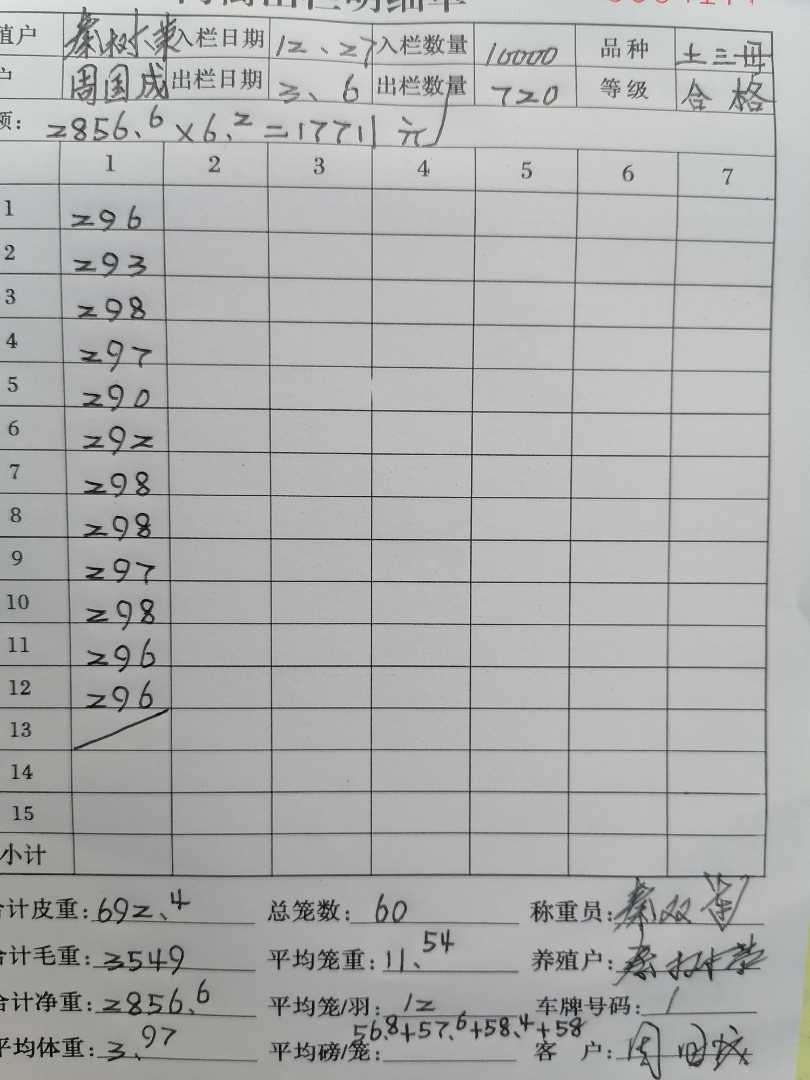 殖户 秦树荣 入栏日期 12、27 入栏数量 10000 品种 土三号
户 周国成 出栏日期 3、6 出栏数量 720 等级 合格
额: 2856.6×6.2=17711元
1 2 3 4 5 6 7
1 296
2 293
3 298
4 297
5 290
6 292
7 298
8 298
9 297
10 298
11 296
12 296
13
14
15
小计
合计皮重: 692.4 总笼数: 60 称重员: 秦双
合计毛重: 3549 平均笼重: 11.54 养殖户: 秦树荣
合计净重: 2856.6 平均笼/羽: 12 车牌号码: /
平均体重: 3.97 平均磅/笼: 56.8+57.6+58.4+58 客户: 周国成